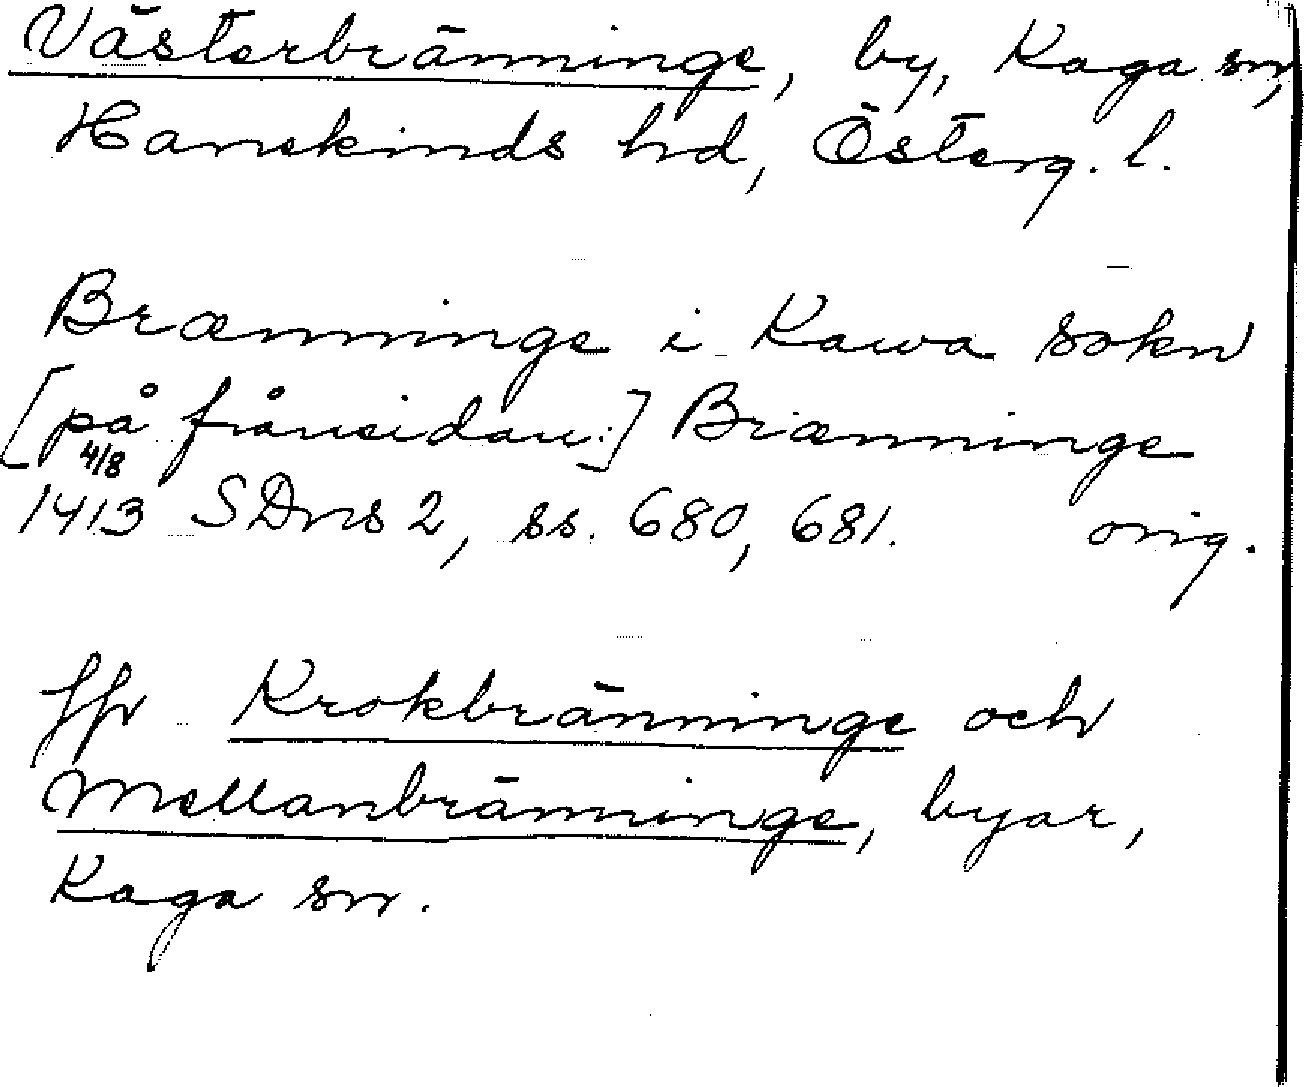 Västerbränninge, by, Kaga sn,
Hanekinds hd, Österg. l.
Brænninge i Kawa sokn
[på frånsidan:] Brænninge
4/8
1413 SDns 2, ss. 680, 681. orig.
Jfr Krokbränninge och
Mellanbränninge, byar,
Kaga sn.